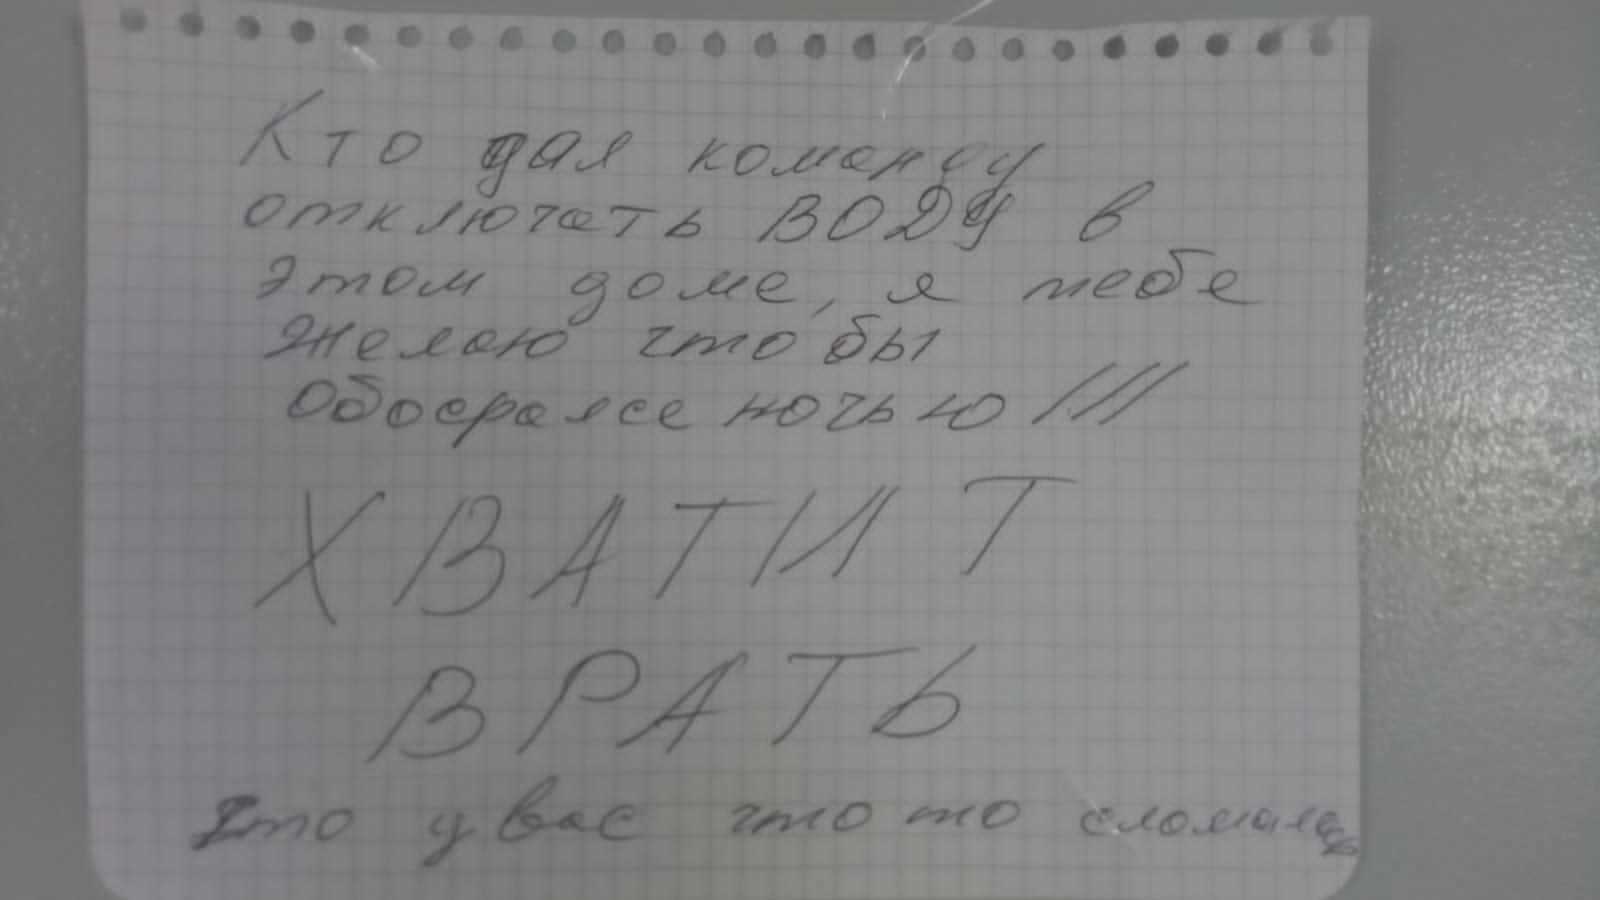 Кто дал команду
отключать ВОДУ в
этом доме, я тебе
желаю что бы
Обосрался ночью !!!
ХВАТИТ
ВРАТЬ
Что у вас что то сломалось